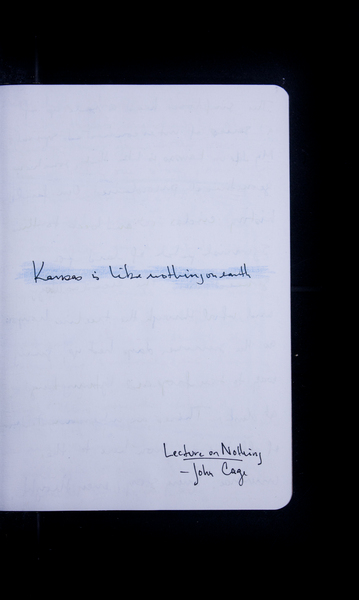 Kansas is like nothing on earth
Lecture on Nothing
- John Cage